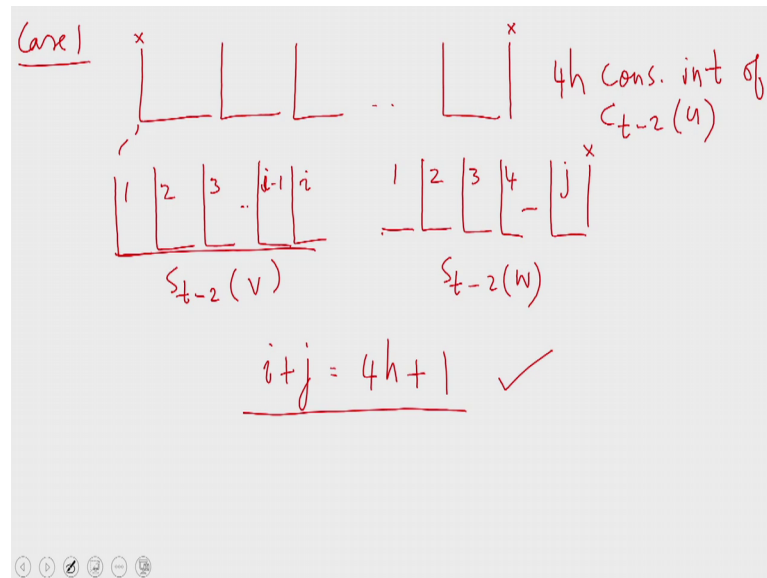 Case 1
x x
4h cons. int of
C_{t-2}(u)
x
1 2 3 .. i-1 i 1 2 3 4 - j
S_{t-2}(v) S_{t-2}(w)
i+j = 4h+1 ✓